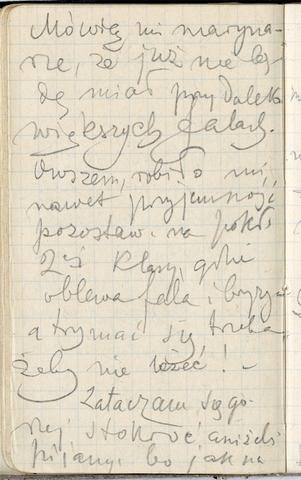 Mówią mi maryna-
rze, że już nie bę-
dę miał przy daleko
większych falach.
Owszem, robiło mi
nawet przyjemność
pozostaw. na pokł.
klasy, gdzie
oblewa fala i bryzga
a trzymać się trzeba,
żeby nie leżeć! –
Zataczam się go-
rzej stokroć aniżeli
pijany, bo jak na